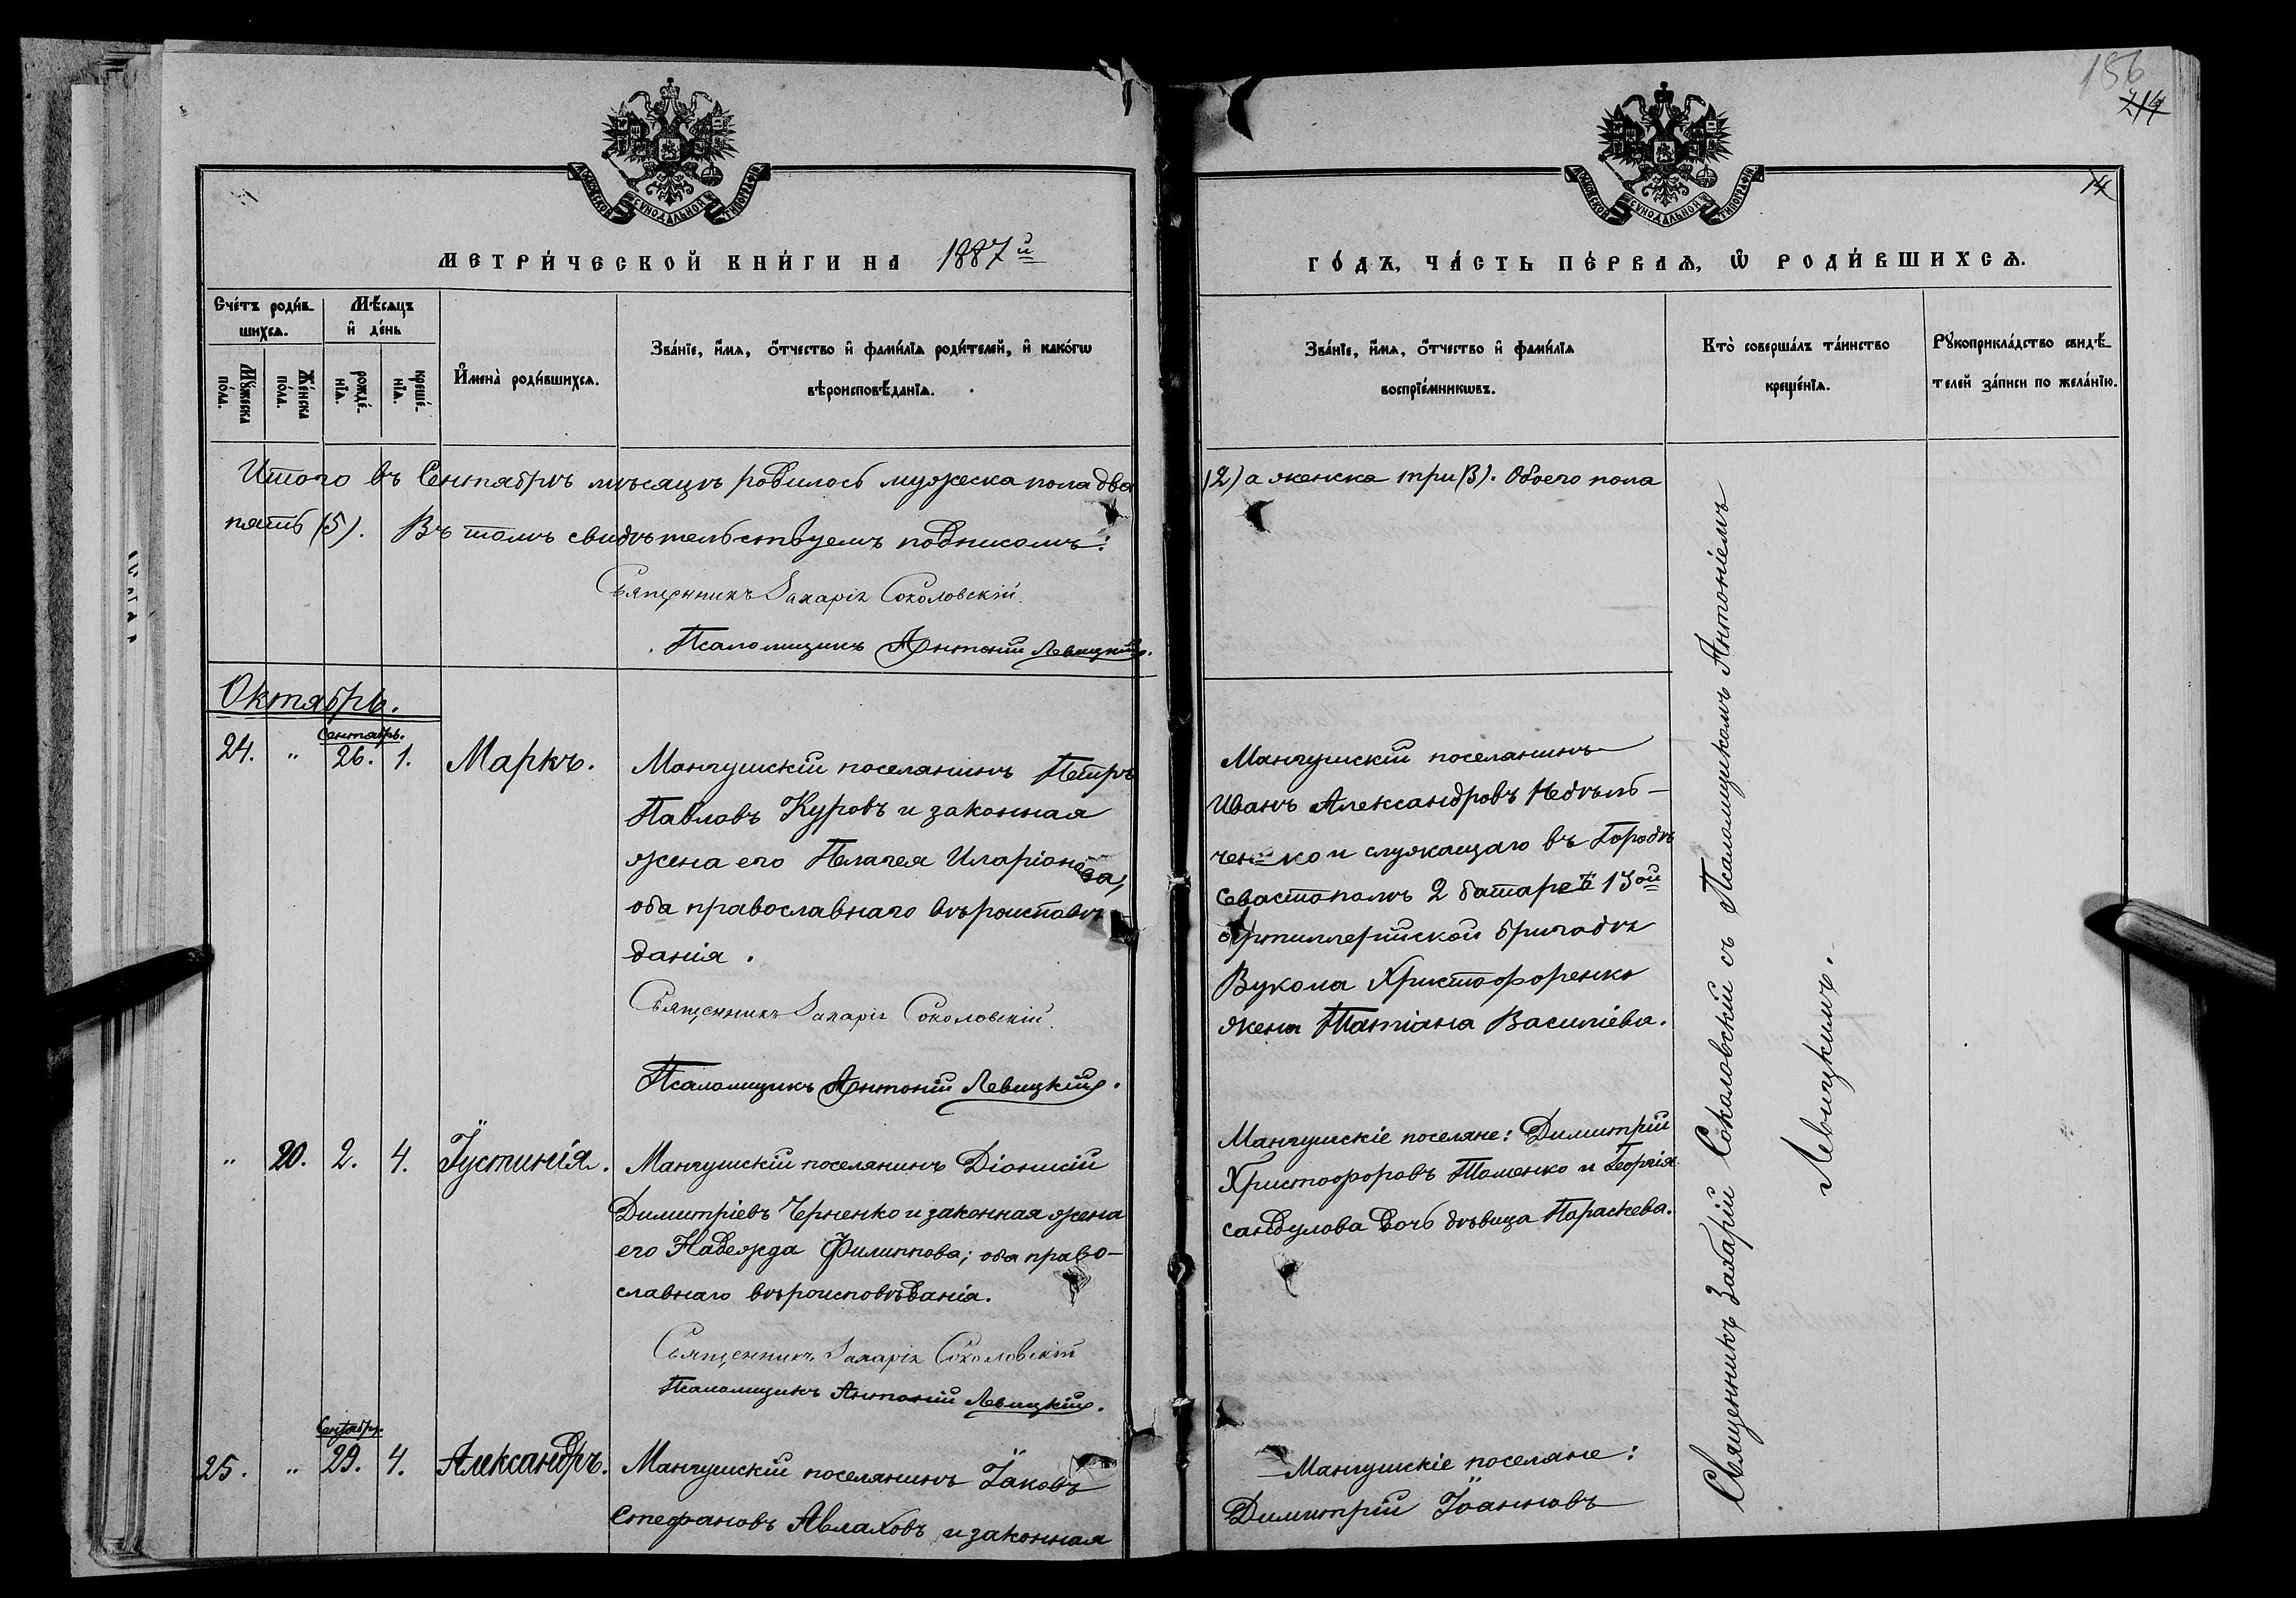 186
214
14
МОСКОВСКОЙ СѴНОДАЛЬНОЙ ТИПОГРАФІИ
МОСКОВСКОЙ СѴНОДАЛЬНОЙ ТИПОГРАФІИ
МЕТРИ́ЧЕСКОЙ КНИ́ГИ НА 1887й
ГО́ДЪ, ЧА́СТЬ ПЕ́РВАѦ, Ѡ҆ РОДИ́ВШИХСѦ.
Сче́тъ роди́в-
шихсѧ.
Мѣ́сѧцъ
и҆ де́нь
Мꙋ́жеска
по́ла.
Же́нска
по́ла.
рожде́-
нїѧ.
креще́-
нїѧ.
И҆мена̀ роди́вшихсѧ.
Зва́нїе, и҆́мѧ, ѻ҆́тчество и҆ фами́лїѧ роди́телей, и҆ како́гѡ
вѣроисповѣ́данїѧ.
Зва́нїе, и҆́мѧ, ѻ҆́тчество и҆ фами́лїѧ
воспрїе́мникѡвъ.
Кто̀ соверша́лъ та́инство
креще́нїѧ.
Рꙋкоприкла́дство свидѣ́-
телей за́писи по жела́нїю.
Итого въ Сентябрѣ мѣсяцѣ родилось мужеска пола два
(2) а женска три (3). Обоего пола
пять (5). Въ томъ свидѣтельствуемъ подписомъ:
Священникъ Захарія Соколовскій.
Псаломщикъ Антоній Левицкій.
Октябрь.
Сентябрь.
24. " 26. 1. Маркъ.
Мангушскій поселянинъ Петръ
Павловъ Куровъ и законная
жена его Пелагея Иларіонова,
оба православнаго вѣроисповѣ
данія.
Священникъ Захарія Соколовскій.
Псаломщикъ Антоній Левицкій.
Мангушскій поселянинъ
Иванъ Александровъ Недѣль-
ченко и служащаго въ Городѣ
Севастополѣ 2 батареѣ 13ой
артиллерійской бригадѣ
Вукола Христофоренко
жена Татіана Василіева.
" 20. 2. 4. Іустинія.
Мангушскій поселянинъ Діонисій
Димитріевъ Черненко и законная жена
его Надежда Филиппова; оба право-
славнаго вѣроисповѣданія.
Священникъ Захарія Соколовскій
Псаломщикъ Антоній Левицкій.
Мангушскіе поселяне: Димитрій
Христофоровъ Томенко и Георгія
Сандулова дочь дѣвица Параскева.
Сентябрь.
25. " 29. 4. Александръ.
Мангушскій поселянинъ Іаковъ
Стефановъ Авлаховъ и законная
Мангушскіе поселяне:
Димитрій Іоанновъ
Священникъ Захарій Соколовскій съ Псаломщикомъ Антоніемъ
Левицкимъ.